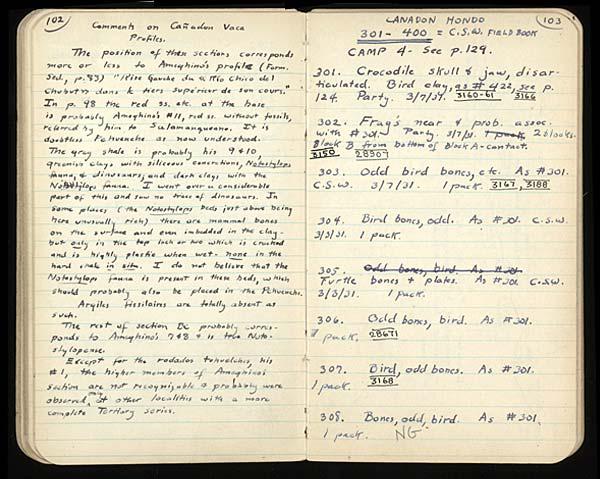 102
Comments on Cañadon Vaca
Profiles.
The position of these sections corresponds
more or less to Ameghino's profile (Form.
Sed., p. 93) "Rive Gauche du Rio Chico del
Chubut dans le tiers supérieur de son cours."
In p. 98 the red ss. etc. at the base
is probably Ameghino's #11, red ss. without fossils,
referred by him to Salamanqueano. It is
doubtless Pehuenche as now understood.
The gray shale is probably his 9 & 10,
greenish clays with siliceous concretions, Notostylops
fauna, & dinosaurs, and dark clays with the
Notostylops fauna. I went over a considerable
part of this and saw no trace of dinosaurs. In
some places (the Notostylops beds just above being
here unusually rich) there are mammal bones
on the surface and even imbedded in the clay-
but only in the top inch or two which is cracked
and is highly plastic when wet - none in the
hard shale in situ. I do not believe that the
Notostylops fauna is present in these beds, which
should probably also be placed in the Pehuenche.
Argiles fissilaires are totally absent as
such.
The rest of section DC probably corres-
ponds to Ameghino's 7 & 8 & is true Noto-
stylopense.
Except for the rodados tehuelches, his
#1, the higher members of Ameghino's
section are not recognizable & probably were
observed at other localities with a more
complete Tertiary series.
CANADON HONDO
103
301 - 400 = C.S.W. FIELD BOOK
CAMP 4 - See p. 129.
301. Crocodile skull & jaw, disar-
ticulated. Bird clay, as # 422, see p.
124. Party. 3/7/31. 3160-61 3166
302. Frag's near & prob. assoc.
with #301. Party. 3/7/31. 1 pack. 2 blocks.
Block B from bottom of block A - contact.
3150 28507
303. Odd bird bones, etc. As #301.
C.S.W. 3/7/31. 1 pack. 3167, 3188
304. Bird bones, odd. As #301. C.S.W.
3/3/31. 1 pack.
305. Odd bones, bird. As #301
Turtle bones & plates. As #301. C.S.W.
3/3/31. 1 pack.
306. Odd bones, bird. As #301.
1 pack. 28671
307. Bird, odd bones. As #301.
1 pack. 3168
308. Bones, odd, bird. As #301.
1 pack. NG